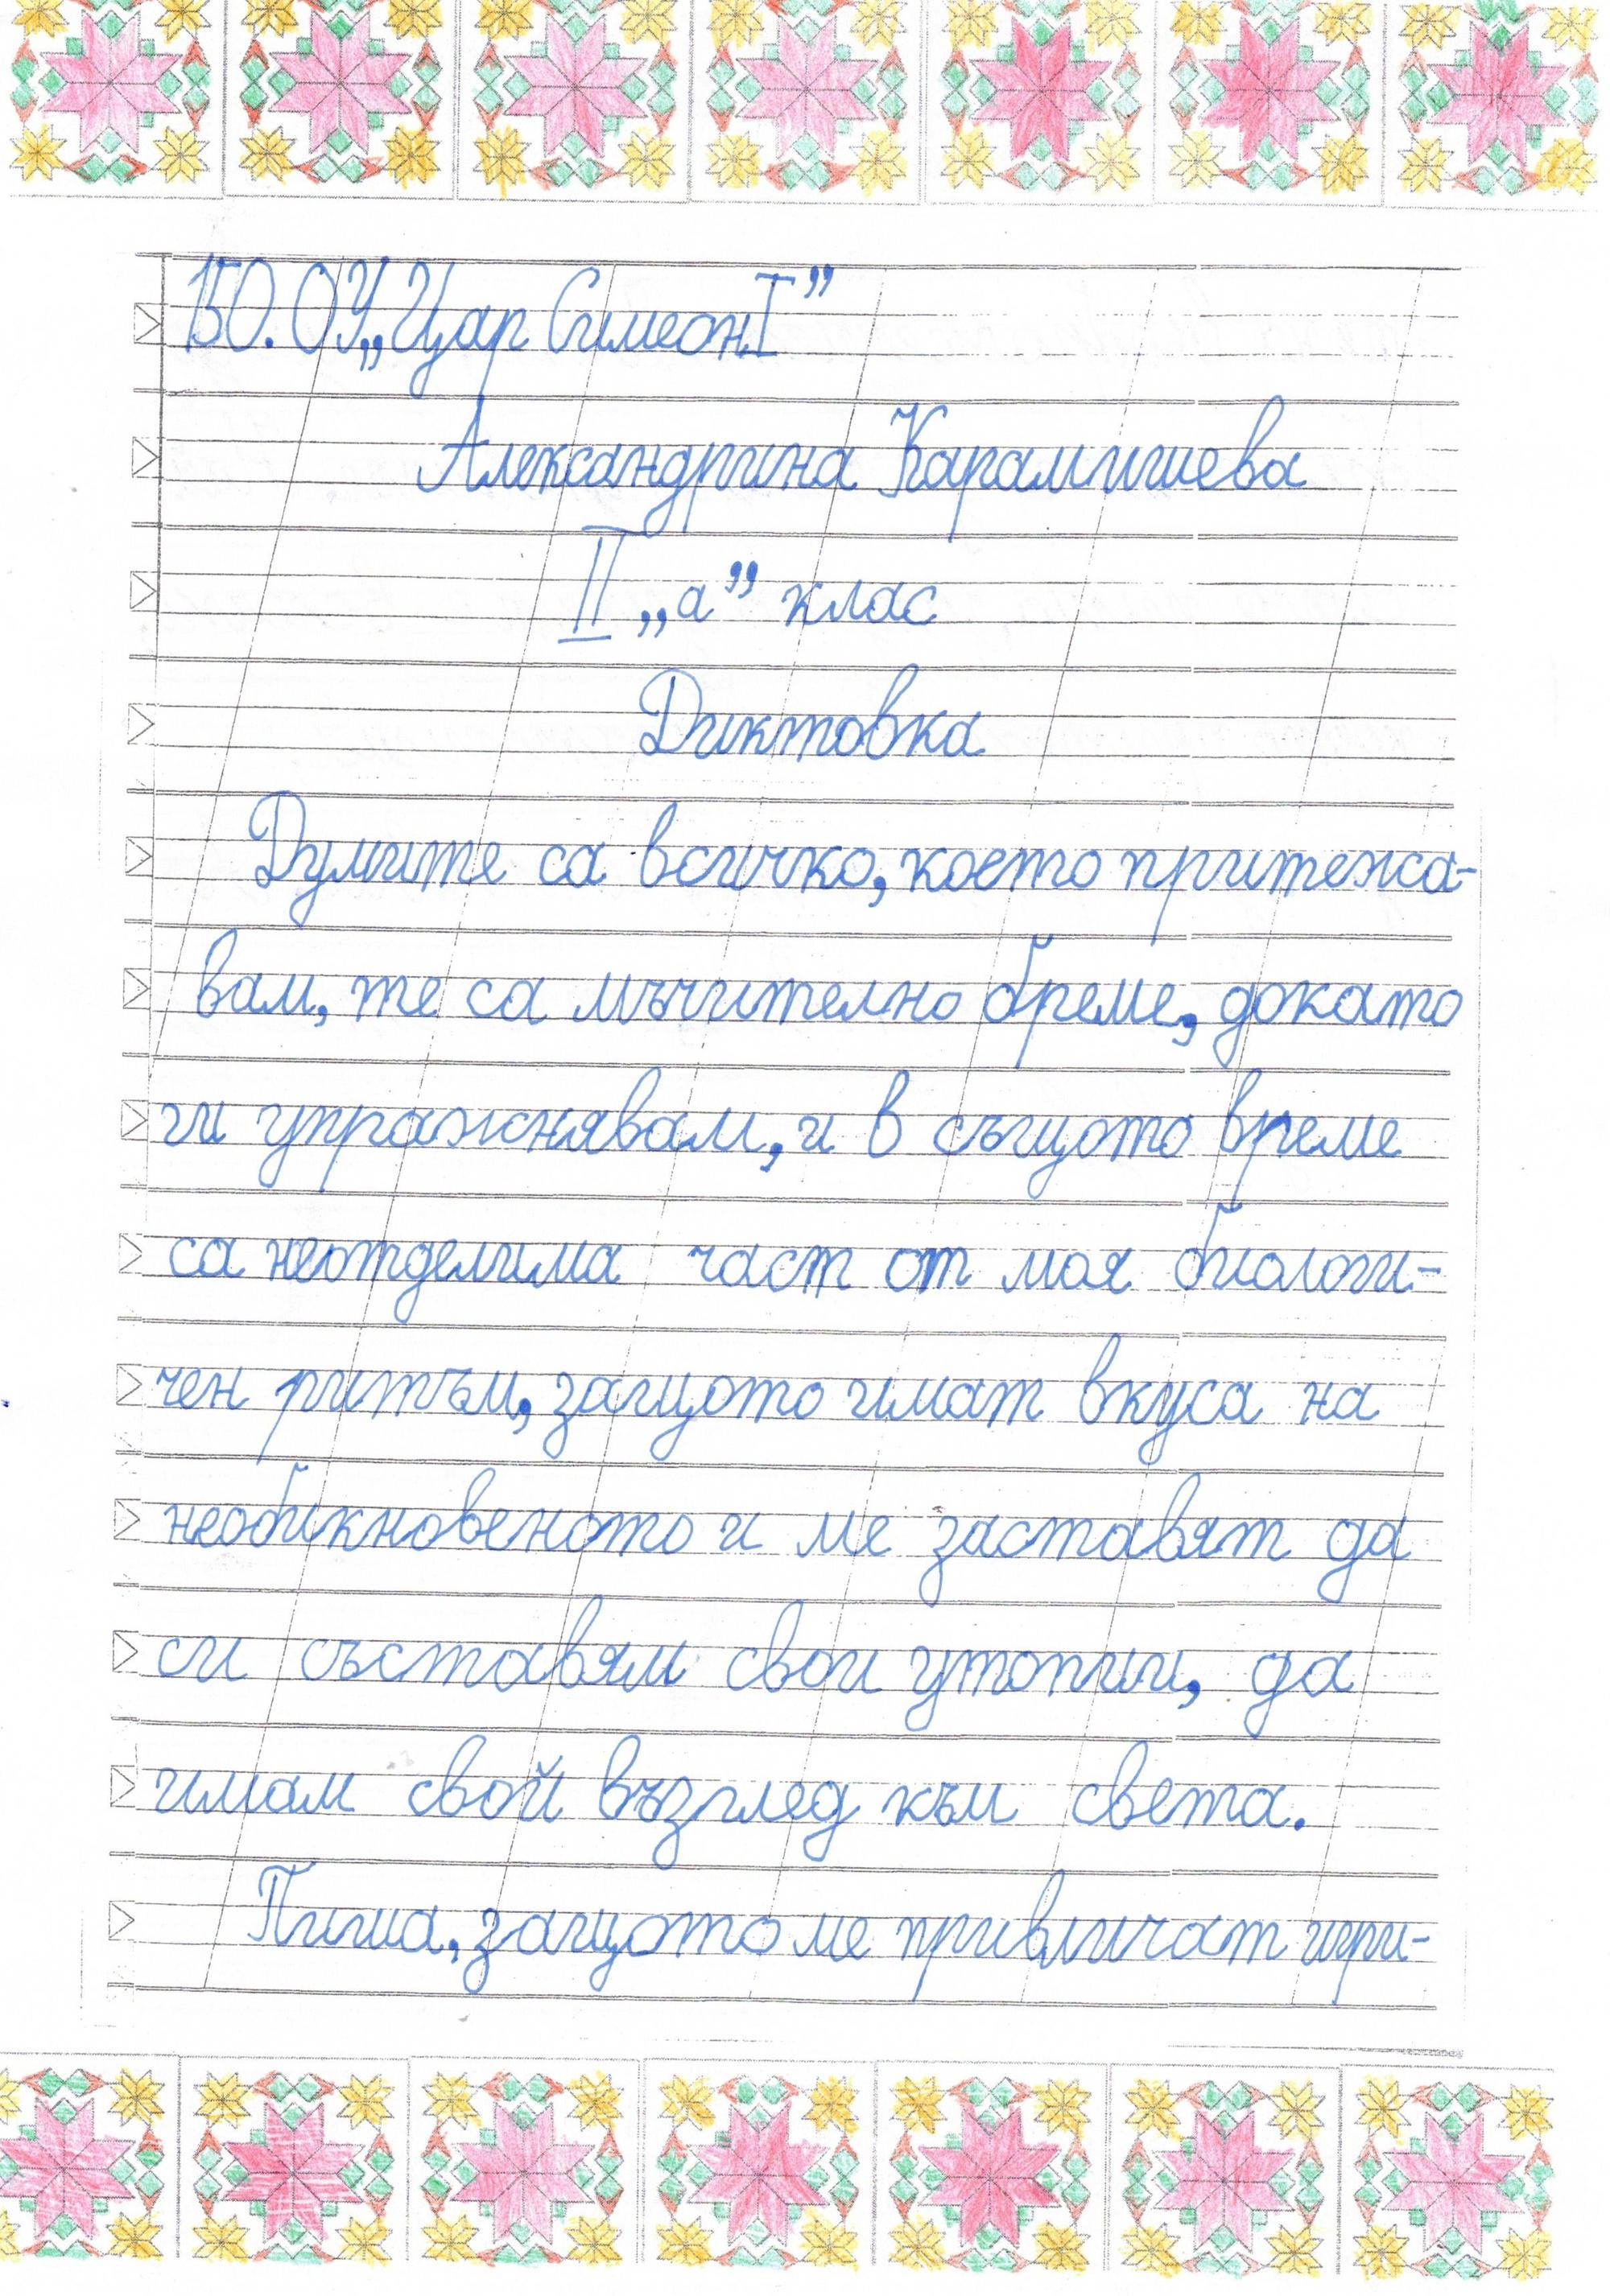 150. ОУ „Цар Симеон I”
Александрина Карамишева
II „а” клас
Диктовка
Думите са всичко, което притежа-
вам, те са мъчително бреме, докато
ги упражнявам, и в същото време
са неотделима част от моя биологи-
чен ритъм, защото имат вкуса на
необикновеното и ме заставят да
си съставям свои утопии, да
имам свой възглед към света.
Пиша, защото ме привличат игри-